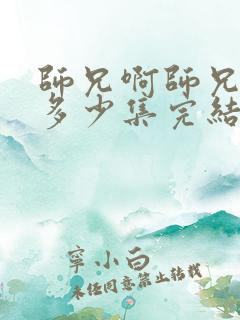 師兄啊師兄
多少集完結
寧小白
未經同意禁止轉載